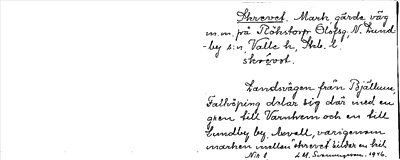 Skrevet. Mark, gärde väg
m.m. på Röhstorp Olofsg, N. Lund-
-by s:n, Valle h, Skb. l.
skrévət.
Landsvägen från Bjällum,
Falköping delar sig där med en
gren till Varnhem och en till
Lundby by. Novell, varigenom
marken mellan skrevet bildar en kil
1946.